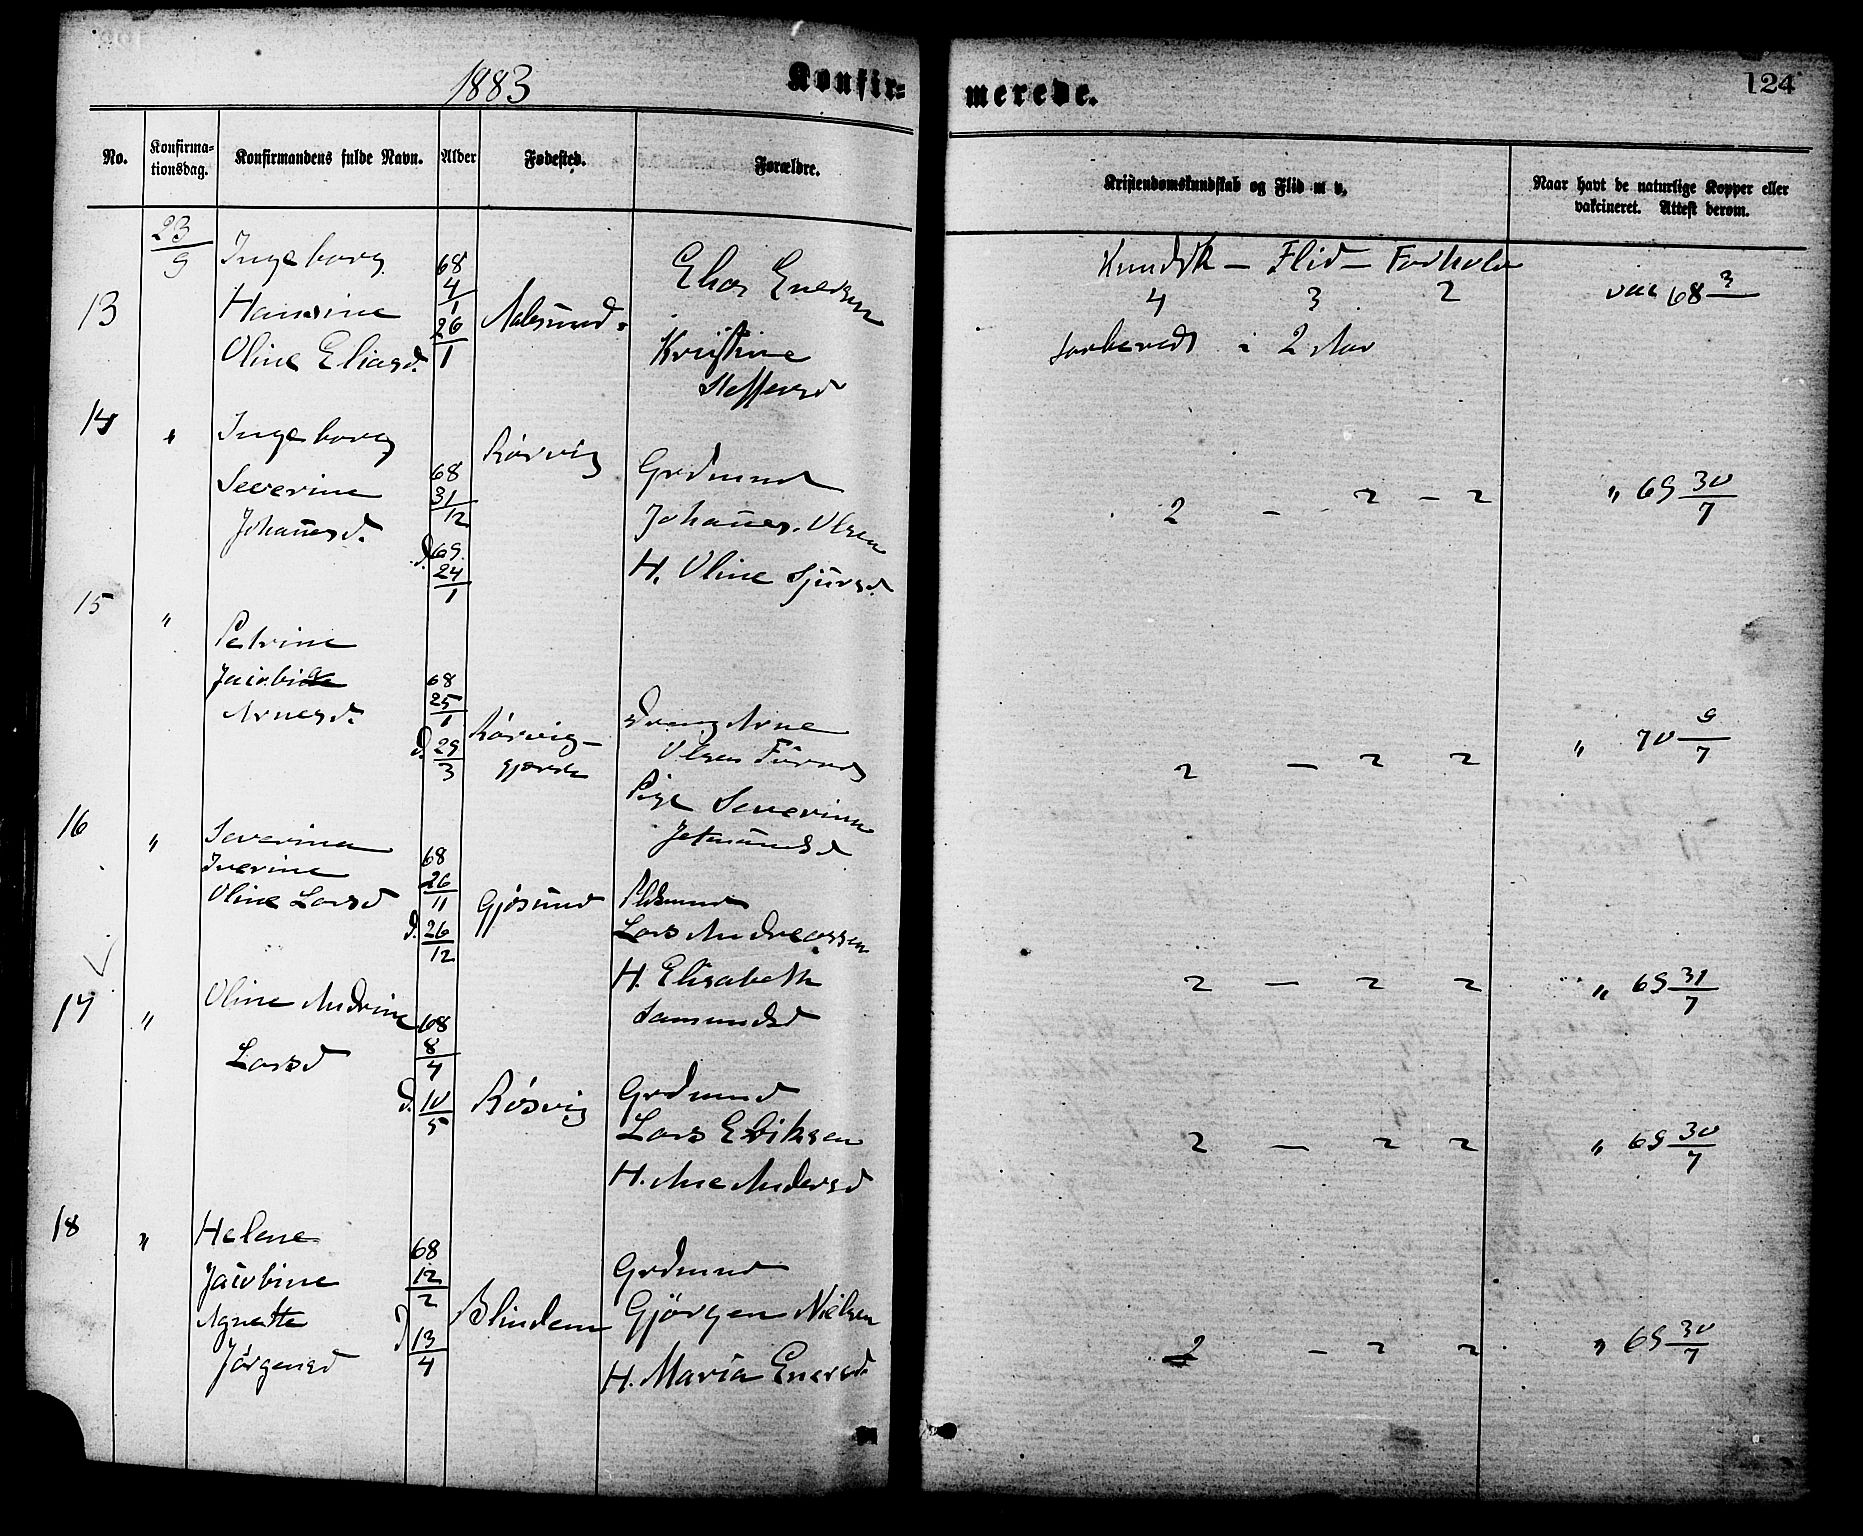 1883
Konfir=
merede.
124
No.
Konfirma-
tionsdag.
Konfirmandens fulde Navn.
Alder
Fødested.
Forældre.
Kristendomskundskab og Flid m v.
Naar havt de naturlige Kopper eller
vakcineret. Attest derom.
13
23/9
Ingeborg
Hansine
Oline Eliasd.
68
4/1
26/1
Aalesund.
Elias
Kristine
Steffensd
Kundsk — Flid — Forhold
4 3 2
forberedt i 2 Aar
vac 68 3
14
"
Ingeborg
Severine
Johañesd.
68
31/12
d. 69
24/1
Rørvig
Grdmand
Johañes. Olsen
H. Oline Sjursd.
2 — 2 — 2
" 69 30/7
15
"
Petrine
Arnesd.
68
25/1
d. 29/3
Rørvig-
gjerde
Arne
Olsen
Pige Severine
2 — 2 2
" 70 9/7
16
"
Severine
Iverine
Oline Larsd
68
26/11
d. 26/12
Gjøsund
Lars Andreassen
H. Elisabeth
2 — 2 2
" 69 31/7
17
"
Oline Andrine
Larsd
68
8/4
d. 10/5
Røsvig
Grdmand
Lars Eriksen
H. Ane Andersd
2 — 2 2
" 69 30/7
18
"
Helene
Jacobine
Agnette
Jørgensd
68
12/2
d 13/4
Blindem
Grdmand
Gjørgen Nielsen
H. Maria
2 — 2 2
" 69 30/7